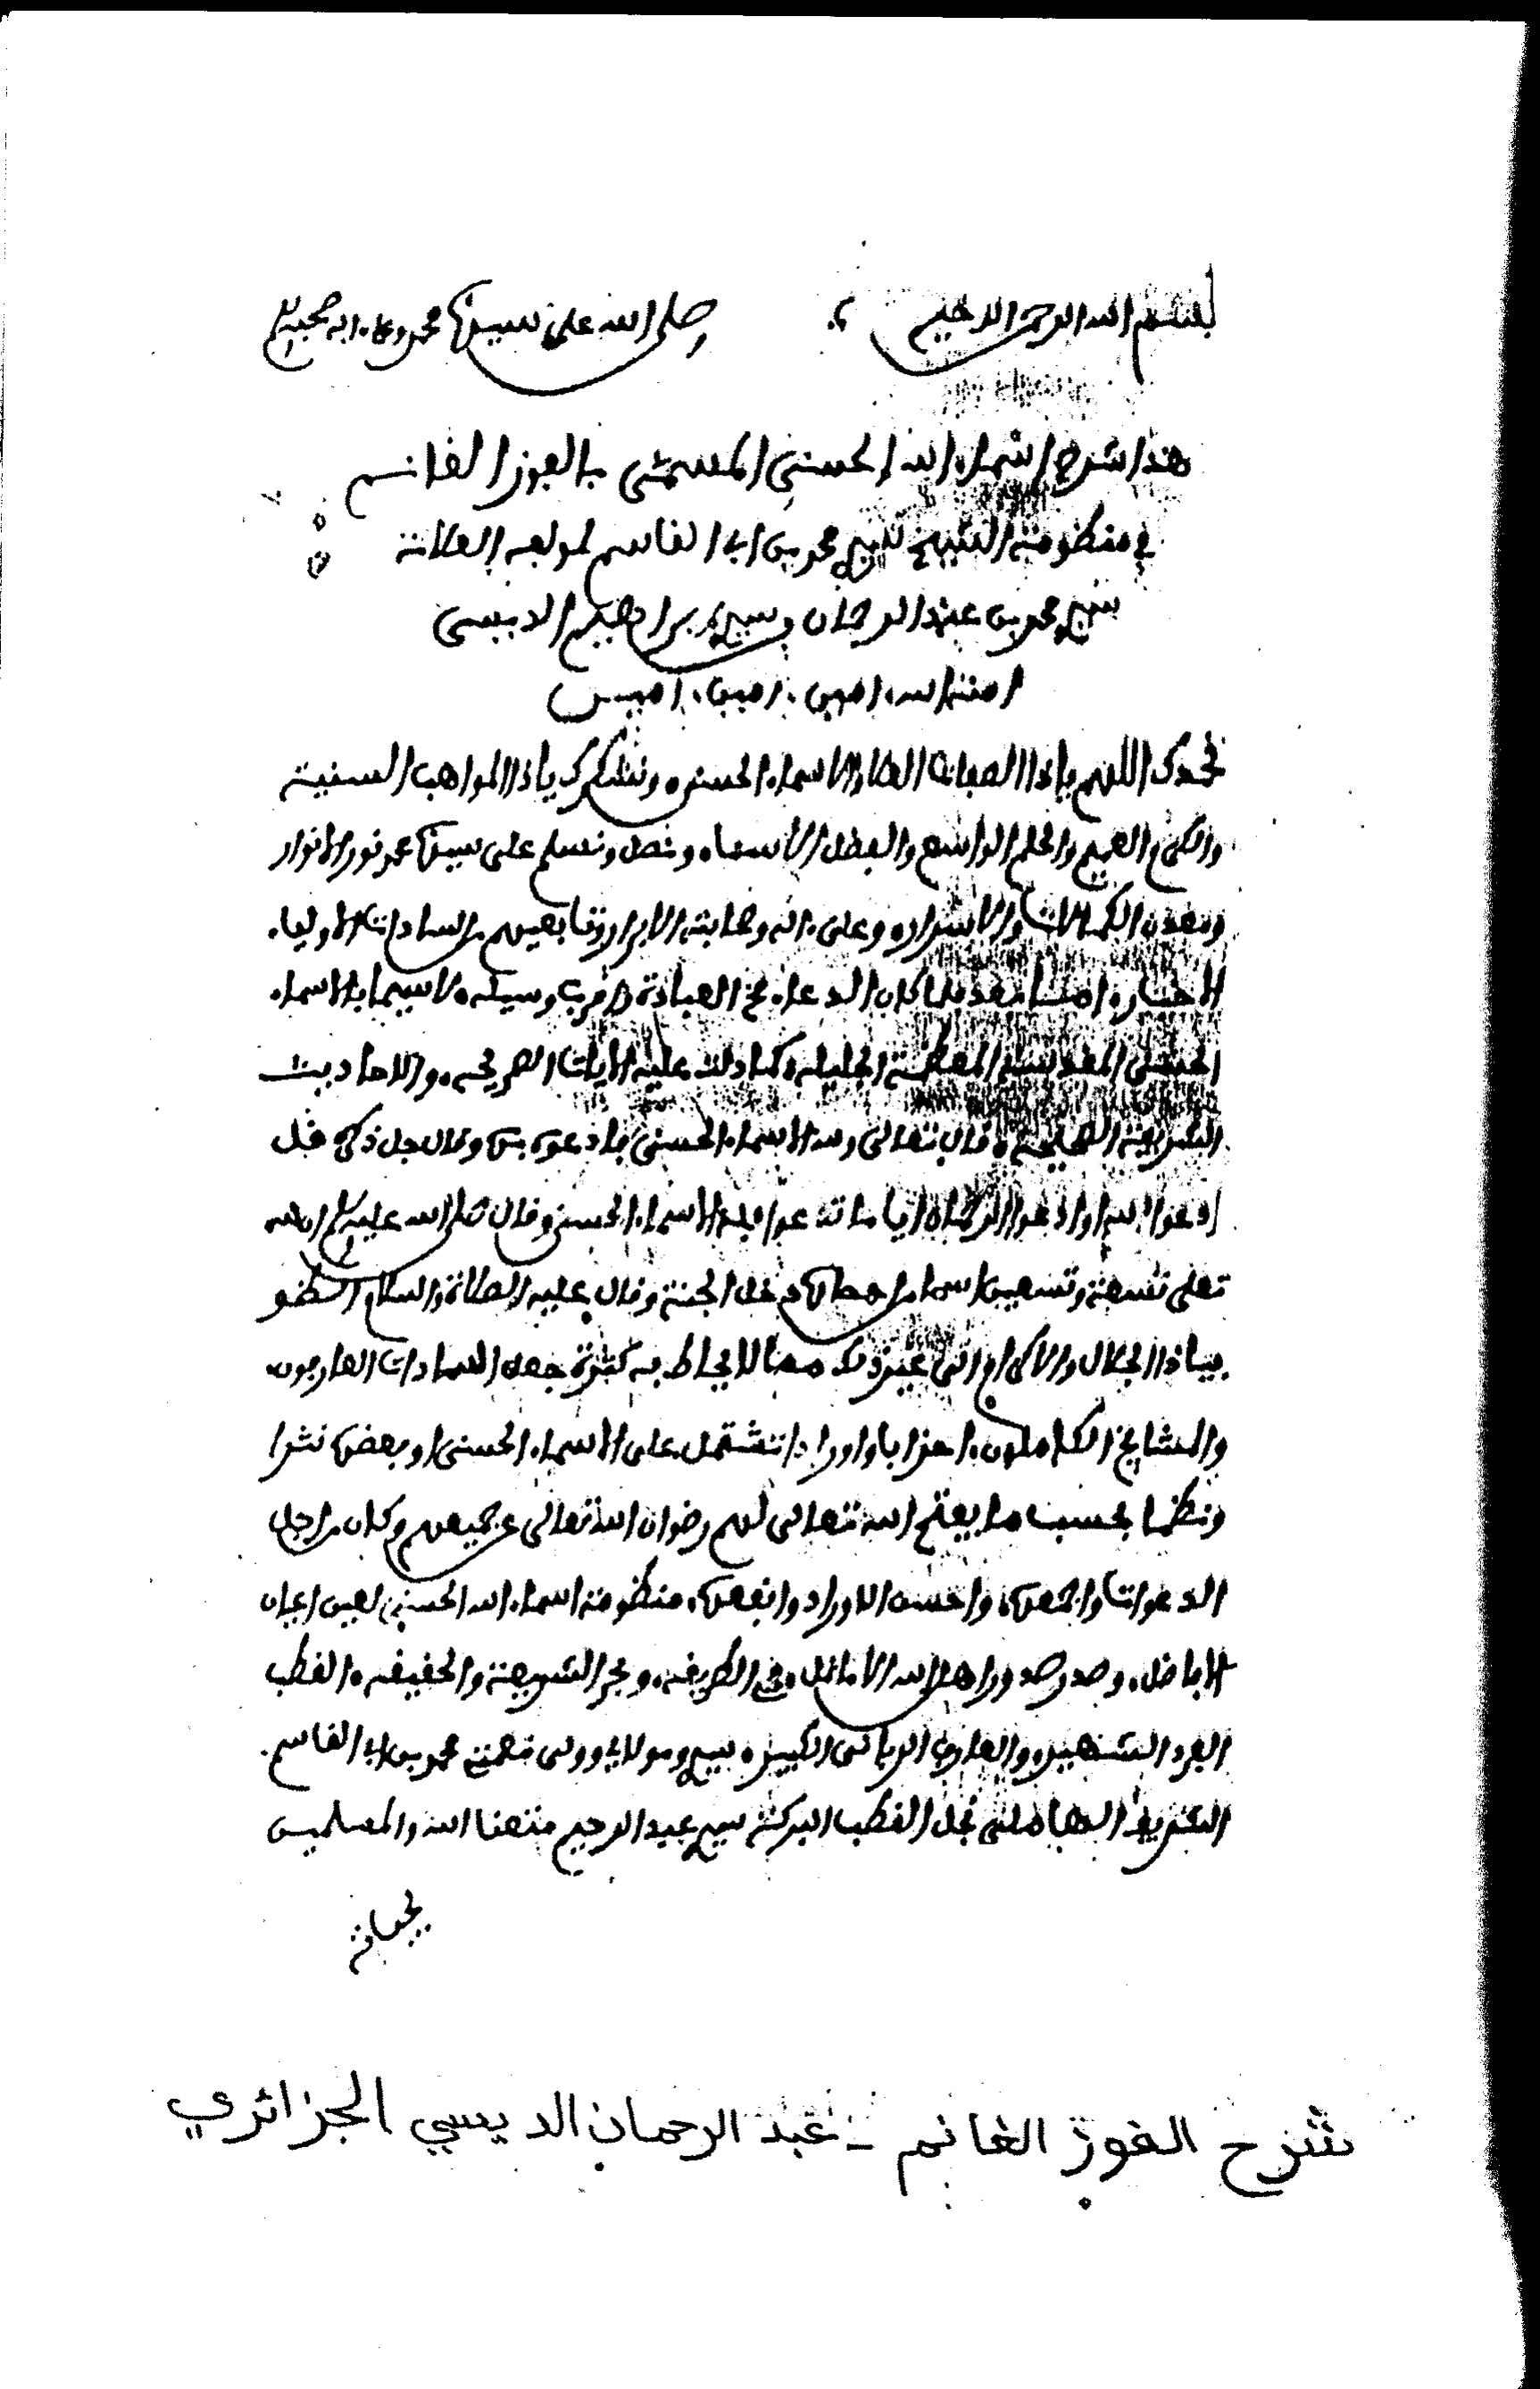 بسم الله الرحمن الرحيم وصلى الله على سيدنا محمد وعلى ءاله وصحبه وسلم
هذا شرح أسماء الله الحسنى المسمى بالفوز الغانم
في منظومة الشيخ سيدي محمد بن ابي القاسم لمولفه العلامة
سيدي محمد بن عبد الرحمان وسيدي ابراهيم الديسي
امنه الله ءامين ءامين ءامين
نحمدك اللهم ياذا الصفات العلا والاسماء الحسنى ونشكرك ياذا المواهب السنية
والكرم العميم والحلم الواسع والفضل الاسما ونصلي ونسلم على سيدنا محمد نور الانوار
ومعدن الكمالات والاسرار وعلى ءاله وصحابته الابرار وتابعيهم من السادات الاولياء
الاخيار اما بعد فلما كان الدعاء مخ العبادة واقرب وسيلة لا سيما بالاسماء
الحسنى المقدسة المعظمة الجليلة كما دلت عليه الايات الصريحة والاحاديث
الشريفة الصحيحة قال تعالى ولله الاسماء الحسنى فادعوه بها وقال جل ذكره قل
ادعوا الله او ادعوا الرحمان ايا ما تدعوا فله الاسماء الحسنى وقال صلى الله عليه وسلم ان لله
تعلى تسعة وتسعين اسما من احصاها دخل الجنة وقال عليه الصلاة والسلام الظوا
بياذا الجلال والاكرام الى غير ذلك مما لا يحاط به كثرة جعل السادات العارفون
والمشايخ الكاملون احزابا واورادا تشتمل على الاسماء الحسنى او بعضها نثرا
ونظما بحسب ما يفتح الله تعالى لهم رضوان الله تعالى عن جميعهم وكان من اجل
الدعوات واجمعها واحسن الاوراد وانفعها منظومة اسماء الله الحسنى لعين اعيان
الافاضل وصدر صدور اهل الله الاماثل الطريقة وبحر الشريعة والحقيقة القطب
الفرد الشهير والعارف الرباني الكبير سيدي ومولاي وولي نعمتي محمد بن ابي القاسم
الشريف الهاملي نجل القطب البركة سيدي عبد الرحيم متعنا الله والمسلمين
بحياته
شرح الفوز الغانم - عبد الرحمان الديسي الجزائري